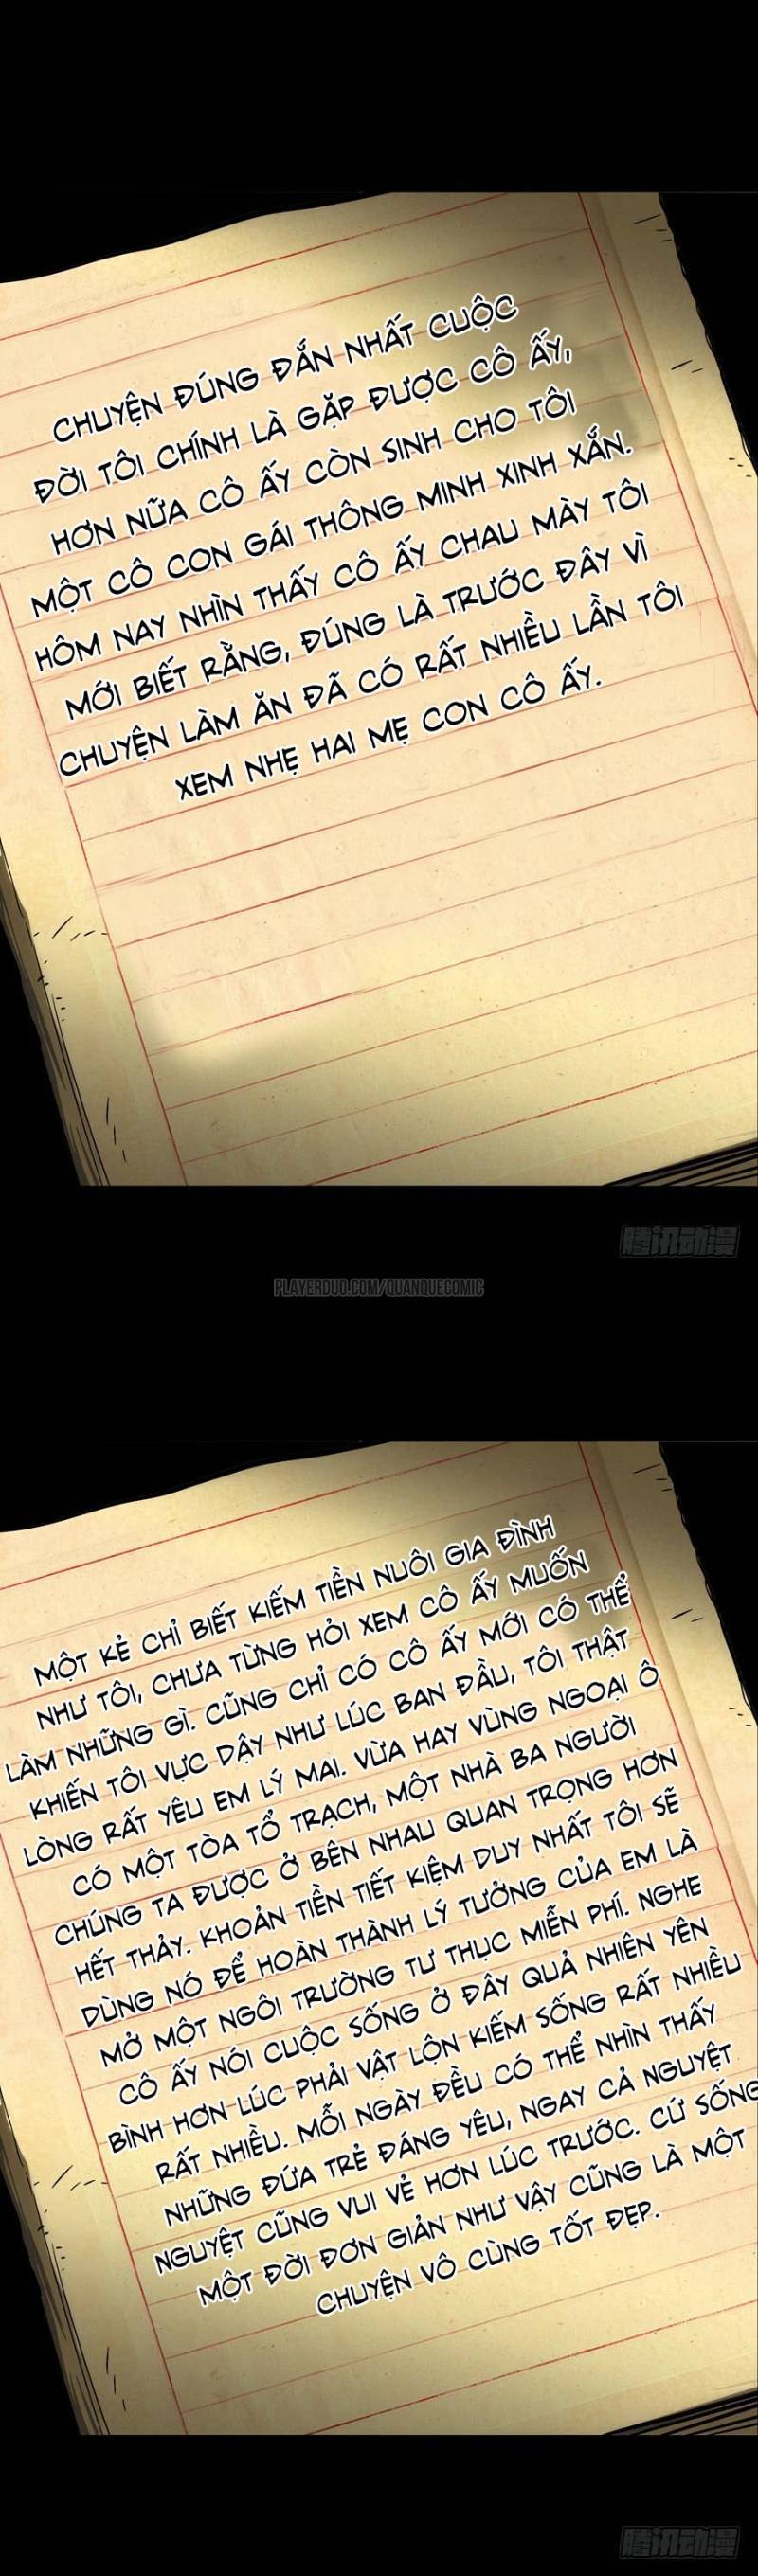 CHUYỆN ĐÚNG ĐẮN NHẤT CUỘC
ĐỜI TÔI CHÍNH LÀ GẶP ĐƯỢC CÔ ẤY,
HƠN NỮA CÔ ẤY CÒN SINH CHO TÔI
MỘT CÔ CON GÁI THÔNG MINH XINH XẮN.
HÔM NAY NHÌN THẤY CÔ ẤY CHAU MÀY TÔI
MỚI BIẾT RẰNG, ĐÚNG LÀ TRƯỚC ĐÂY VÌ
CHUYỆN LÀM ĂN ĐÃ CÓ RẤT NHIỀU LẦN TÔI
XEM NHẸ HAI MẸ CON CÔ ẤY.
腾讯动漫
PLAYERDUO.COM/QUANQUECOMIC
MỘT KẺ CHỈ BIẾT KIẾM TIỀN NUÔI GIA ĐÌNH
NHƯ TÔI, CHƯA TỪNG HỎI XEM CÔ ẤY MUỐN
LÀM NHỮNG GÌ. CŨNG CHỈ CÓ CÔ ẤY MỚI CÓ THỂ
KHIẾN TÔI VỰC DẬY NHƯ LÚC BAN ĐẦU, TÔI THẬT
LÒNG RẤT YÊU EM LÝ MAI. VỪA HAY VÙNG NGOẠI Ô
CÓ MỘT TÒA TỔ TRẠCH, MỘT NHÀ BA NGƯỜI
CHÚNG TA ĐƯỢC Ở BÊN NHAU QUAN TRỌNG HƠN
HẾT THẢY. KHOẢN TIỀN TIẾT KIỆM DUY NHẤT TÔI SẼ
DÙNG NÓ ĐỂ HOÀN THÀNH LÝ TƯỞNG CỦA EM LÀ
MỞ MỘT NGÔI TRƯỜNG TƯ THỤC MIỄN PHÍ. NGHE
CÔ ẤY NÓI CUỘC SỐNG Ở ĐÂY QUẢ NHIÊN YÊN
BÌNH HƠN LÚC PHẢI VẬT LỘN KIẾM SỐNG RẤT NHIỀU
RẤT NHIỀU. MỖI NGÀY ĐỀU CÓ THỂ NHÌN THẤY
NHỮNG ĐỨA TRẺ ĐÁNG YÊU, NGAY CẢ NGUYỆT
NGUYỆT CŨNG VUI VẺ HƠN LÚC TRƯỚC. CỨ SỐNG
MỘT ĐỜI ĐƠN GIẢN NHƯ VẬY CŨNG LÀ MỘT
CHUYỆN VÔ CÙNG TỐT ĐẸP.
腾讯动漫